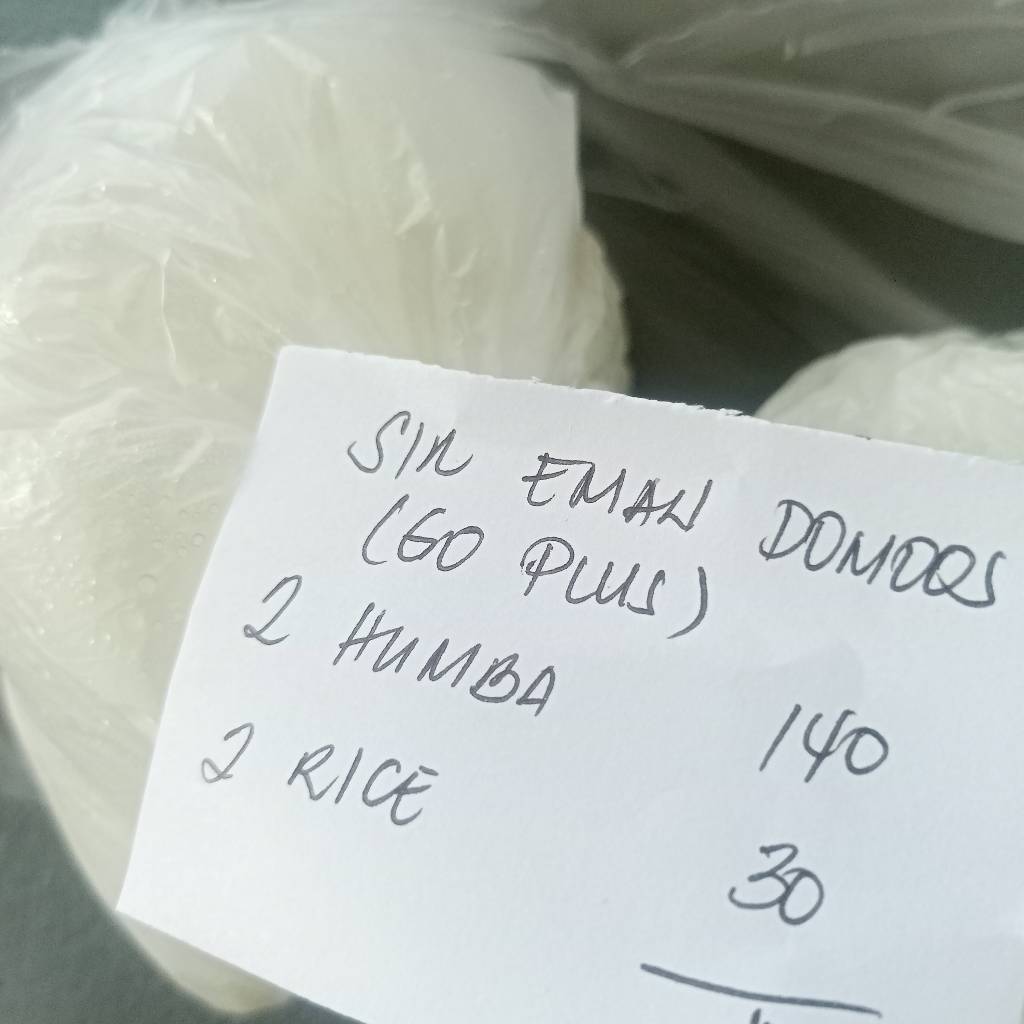 SIR EMAN DOMOQS
(GO PLUS)
2 HUMBA 140
2 RICE 30